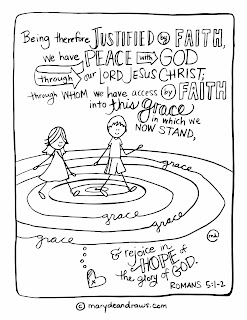 Being therefore JUSTIFIED by FAITH,
we have PEACE with GOD
through our LORD JESUS CHRIST;
through WHOM we have access by FAITH
into this grace
in which we
NOW STAND,
grace
grace
grace
grace
grace
md
& rejoice in
HOPE of
the glory of GOD.
ROMANS 5:1-2
© marydeandraws.com